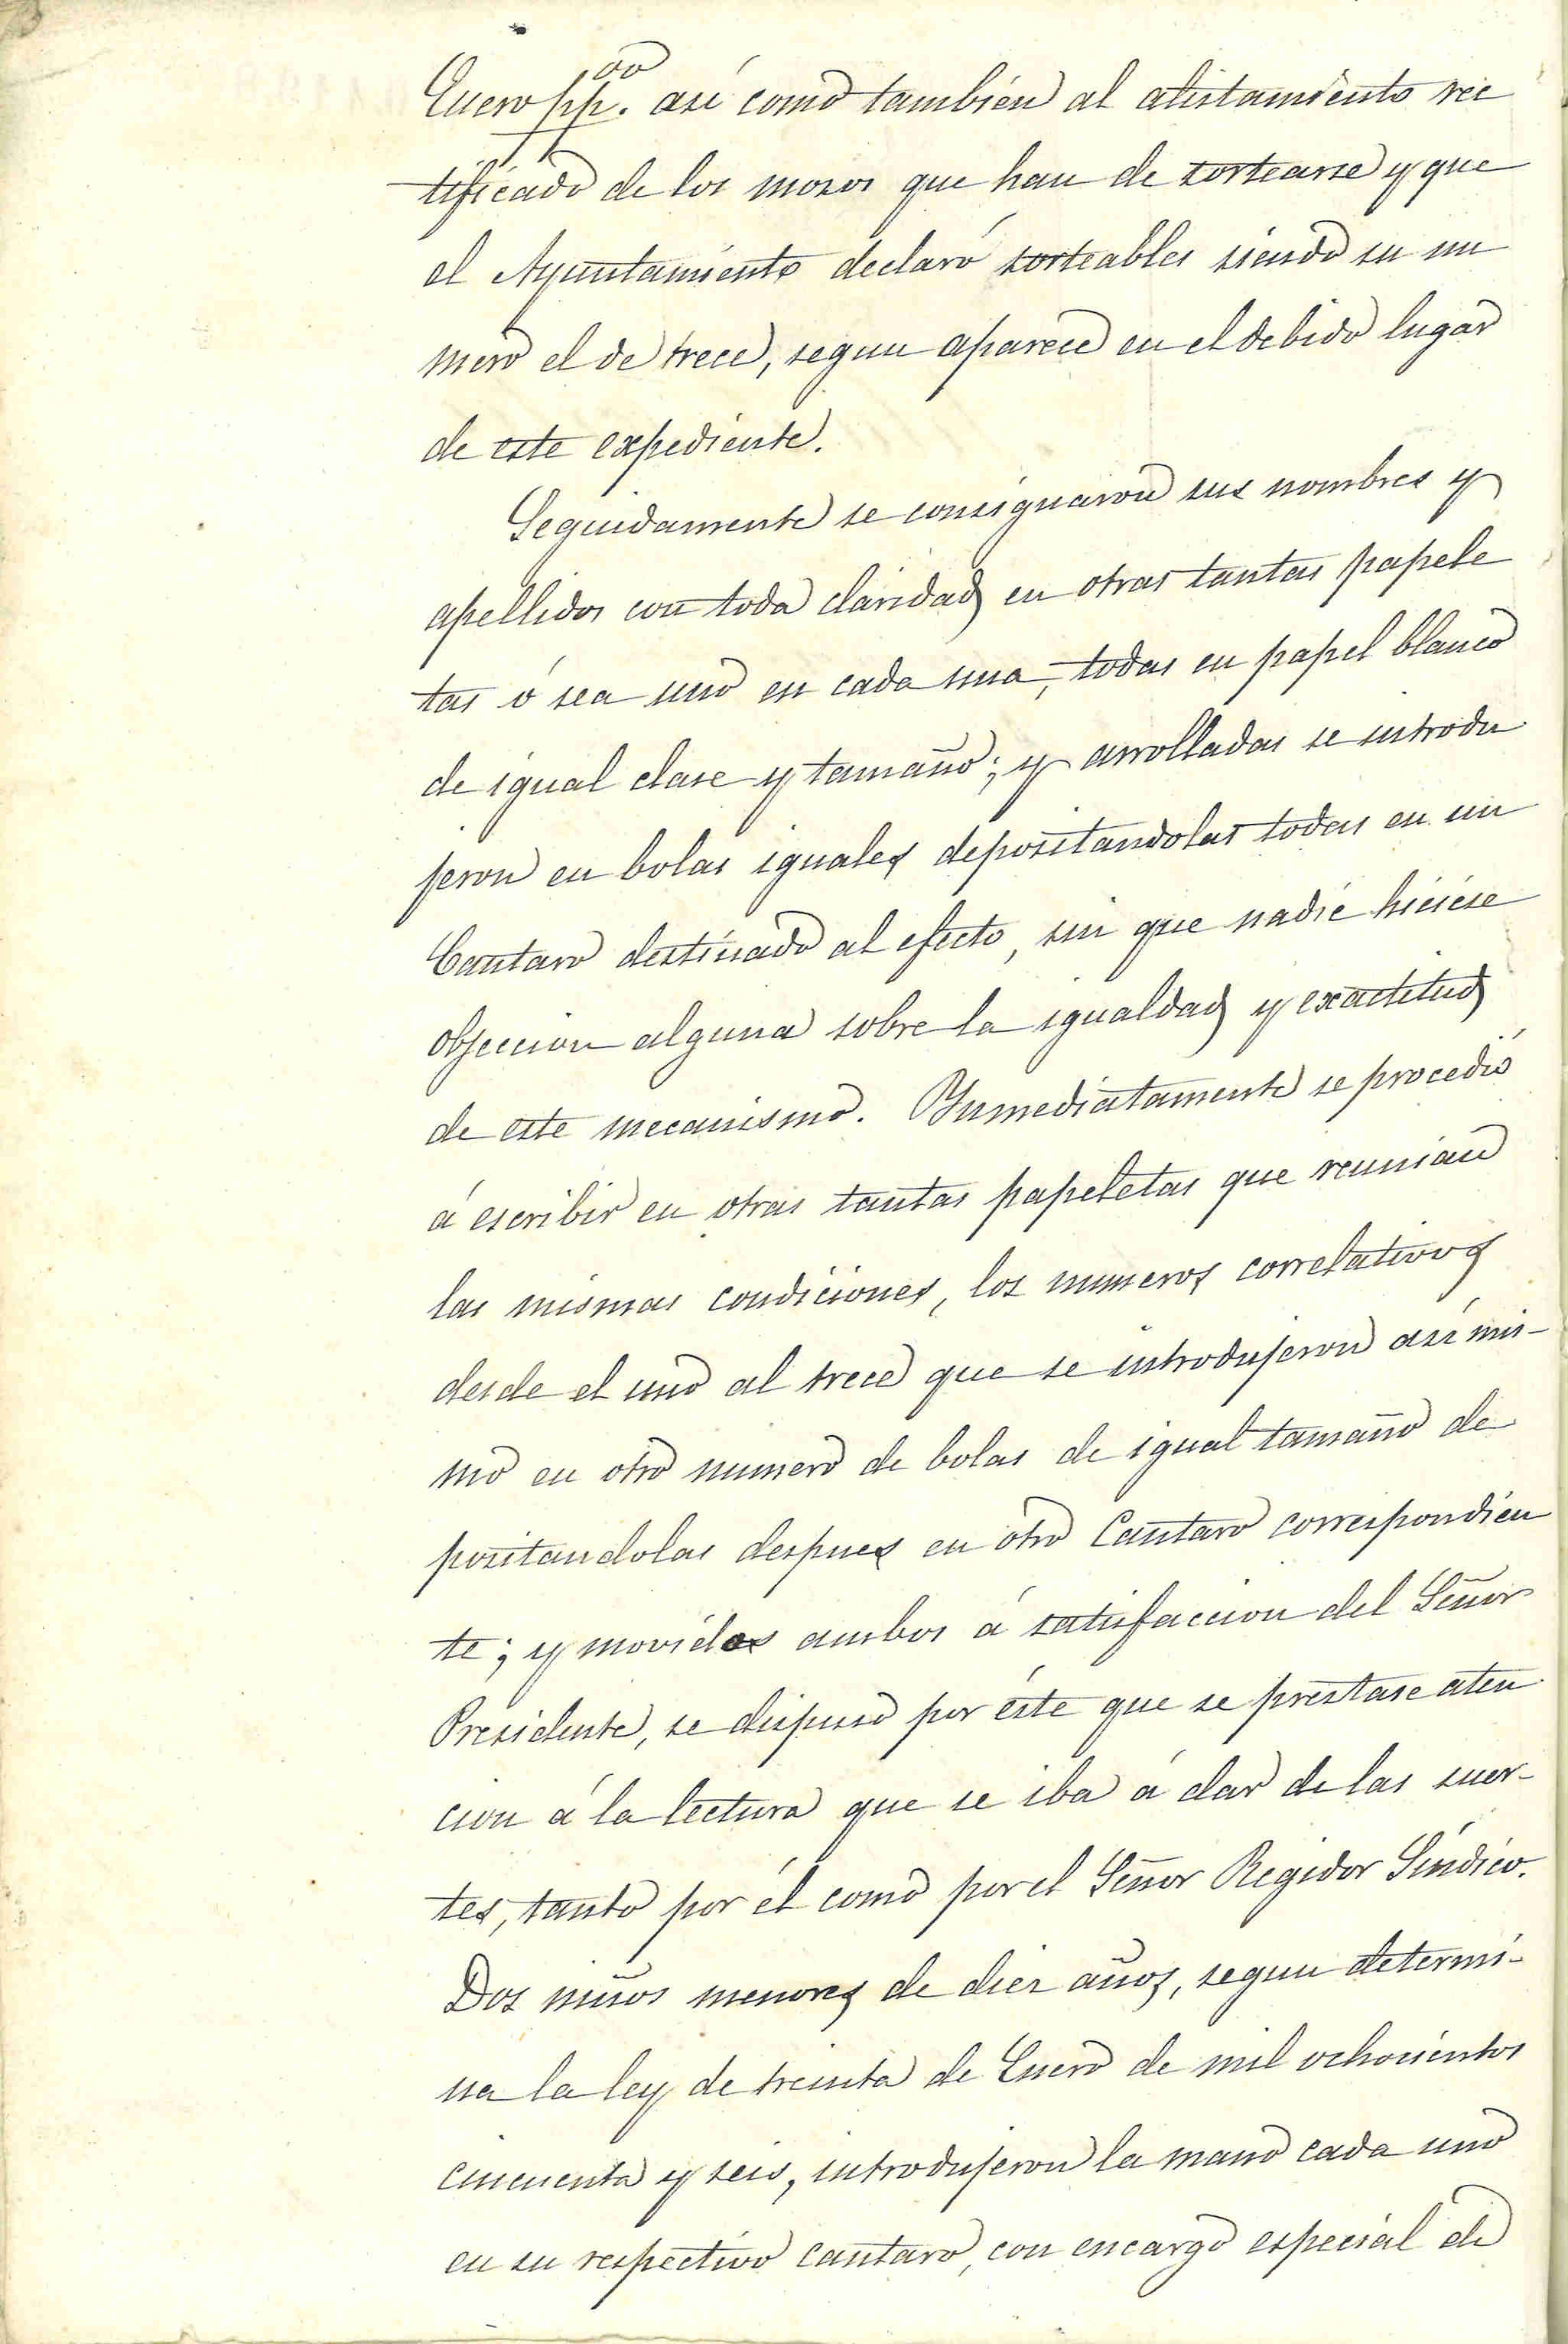 Enero pp.do así como también al alistamiento rec
tificado de los mozos que han de sortearse y que
el Ayuntamiento declaró sorteables siendo su nu
mero el de trece, segun aparece en el debido lugar
de este expediente.
Seguidamente se consignaron sus nombres y
apellidos con toda claridad en otras tantas papele
tas ó sea uno en cada una, todas en papel blanco
de igual clase y tamaño; y arrolladas se introdu
jeron en bolas iguales depositandolas todas en un
Cantaro destinado al efecto, sin que nadie hiciese
objeccion alguna sobre la igualdad y exactitud
de este mecanismo. Ynmediatamente se procedió
á escribir en otras tantas papeletas que reunian
las mismas condiciones, los numeros correlativos
desde el uno al trece que se introdujeron así mis-
mo en otro numero de bolas de igual tamaño de
positandolas despues en otro Cantaro correspondien
te; y movidos ambos á satisfaccion del Señor
Presidente, se dispuso por éste que se prestase aten
cion á la lectura que se iba á dar de las suer-
tes, tanto por él como por el Señor Regidor Síndico.
Dos niños menores de diez años, segun determi-
na la ley de treinta de Enero de mil ochocientos
cincuenta y seis, introdujeron la mano cada uno
en su respectivo cantaro, con encargo especial de